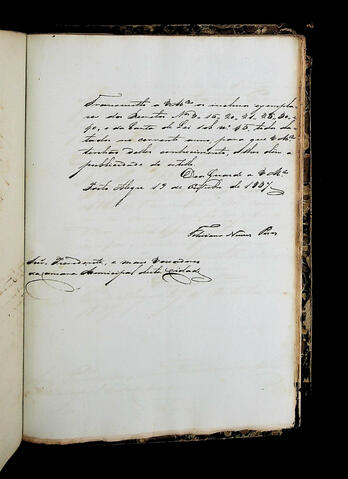 Transmitto a V. M.ces os inclusos exempla-
res dos Decretos N.os 15, 20, 21, 28, 30,
e da Carta de Lei sob n.º 40, todos da-
tados no corrente anno para que V. M.ces
tenhão delles conhecimento, e lhes dêm a
publicidade do estilo.
Deos Guarde a V. M.ces
Porto Alegre 19 de de 1837
Feliciano Nunes Pires
Snr.s Presidente, e mais Vereadores
da Camara Municipal desta Cidade